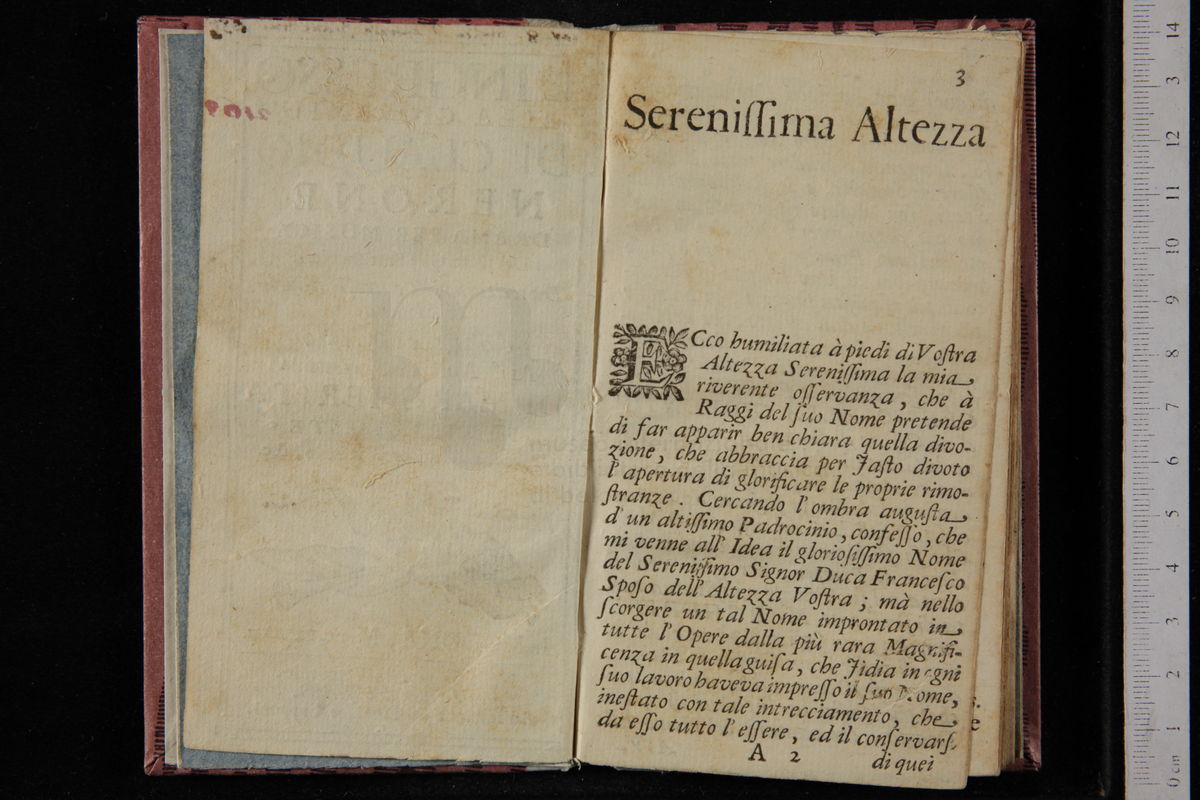 3
Sereniſſima Altezza
ECco humiliata à piedi di Voſtra
Altezza Sereniſſima la mia
riverente oſſervanza, che à
Raggi del ſuo Nome pretende
di far apparir ben chiara quella divo-
zione, che abbraccia per Faſto divoto
l'apertura di glorificare le proprie rimo-
ſtranze. Cercando l'ombra auguſta
d'un altiſſimo Padrocinio, confeſſo, che
mi venne all'Idea il glorioſiſſimo Nome
del Sereniſſimo Signor Duca Franceſco
Spoſo dell'Altezza Voſtra; mà nello
ſcorgere un tal Nome improntato in
tutte l'Opere dalla più rara Magnifi-
cenza in quella guiſa, che Fidia in ogni
ſuo lavoro haveva impreſſo il ſuo Nome,
ineſtato con tale intrecciamento, che
da eſſo tutto l'eſſere, ed il conſervarſi
A 2
di quei
14
13
12
11
10
9
8
7
6
5
4
3
2
1
0 cm